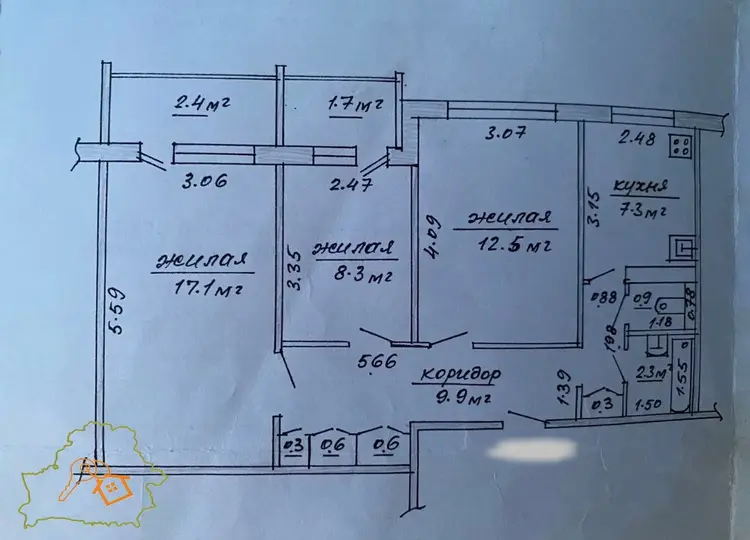 2.4м²
1.7м²
3.06
2.47
3.07
2.48
кухня
7.3м²
3.15
4.09
жилая
12.5м²
жилая
17.1м²
жилая
8.3м²
3.35
5.59
0.88
0.9
1.18
0.78
1.08
5.66
коридор
9.9м²
1.39
2.3м²
1.55
1.50
0.3
0.3
0.6
0.6